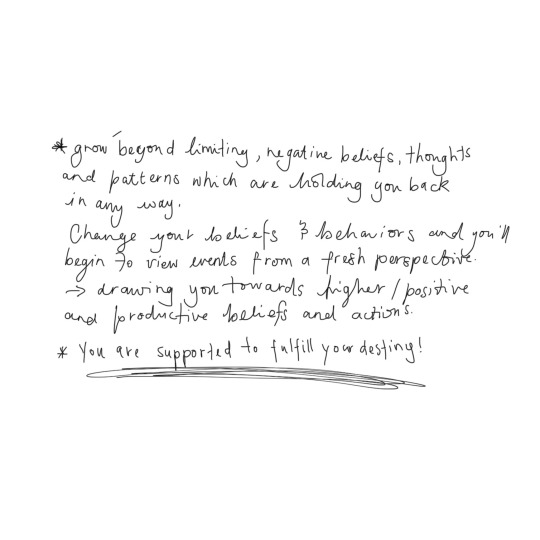 * grow beyond limiting, negative beliefs, thoughts
and patterns which are holding you back
in any way.
Change your beliefs & behaviors and you'll
begin to view events from a fresh perspective.
→ drawing you towards higher / positive
and productive beliefs and actions.
* You are supported to fulfill your destiny!